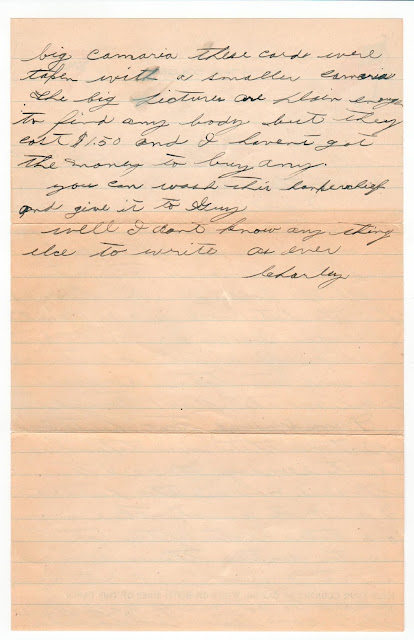 big camaria these cards were
taken with a smaller camaria
the big pictures are plain enough
to find any body but they
cost $1.50 and I havent got
the money to buy any.
you can wash this hankerchief
and give it to Guy
well I dont know any thing
else to write as ever
Charley